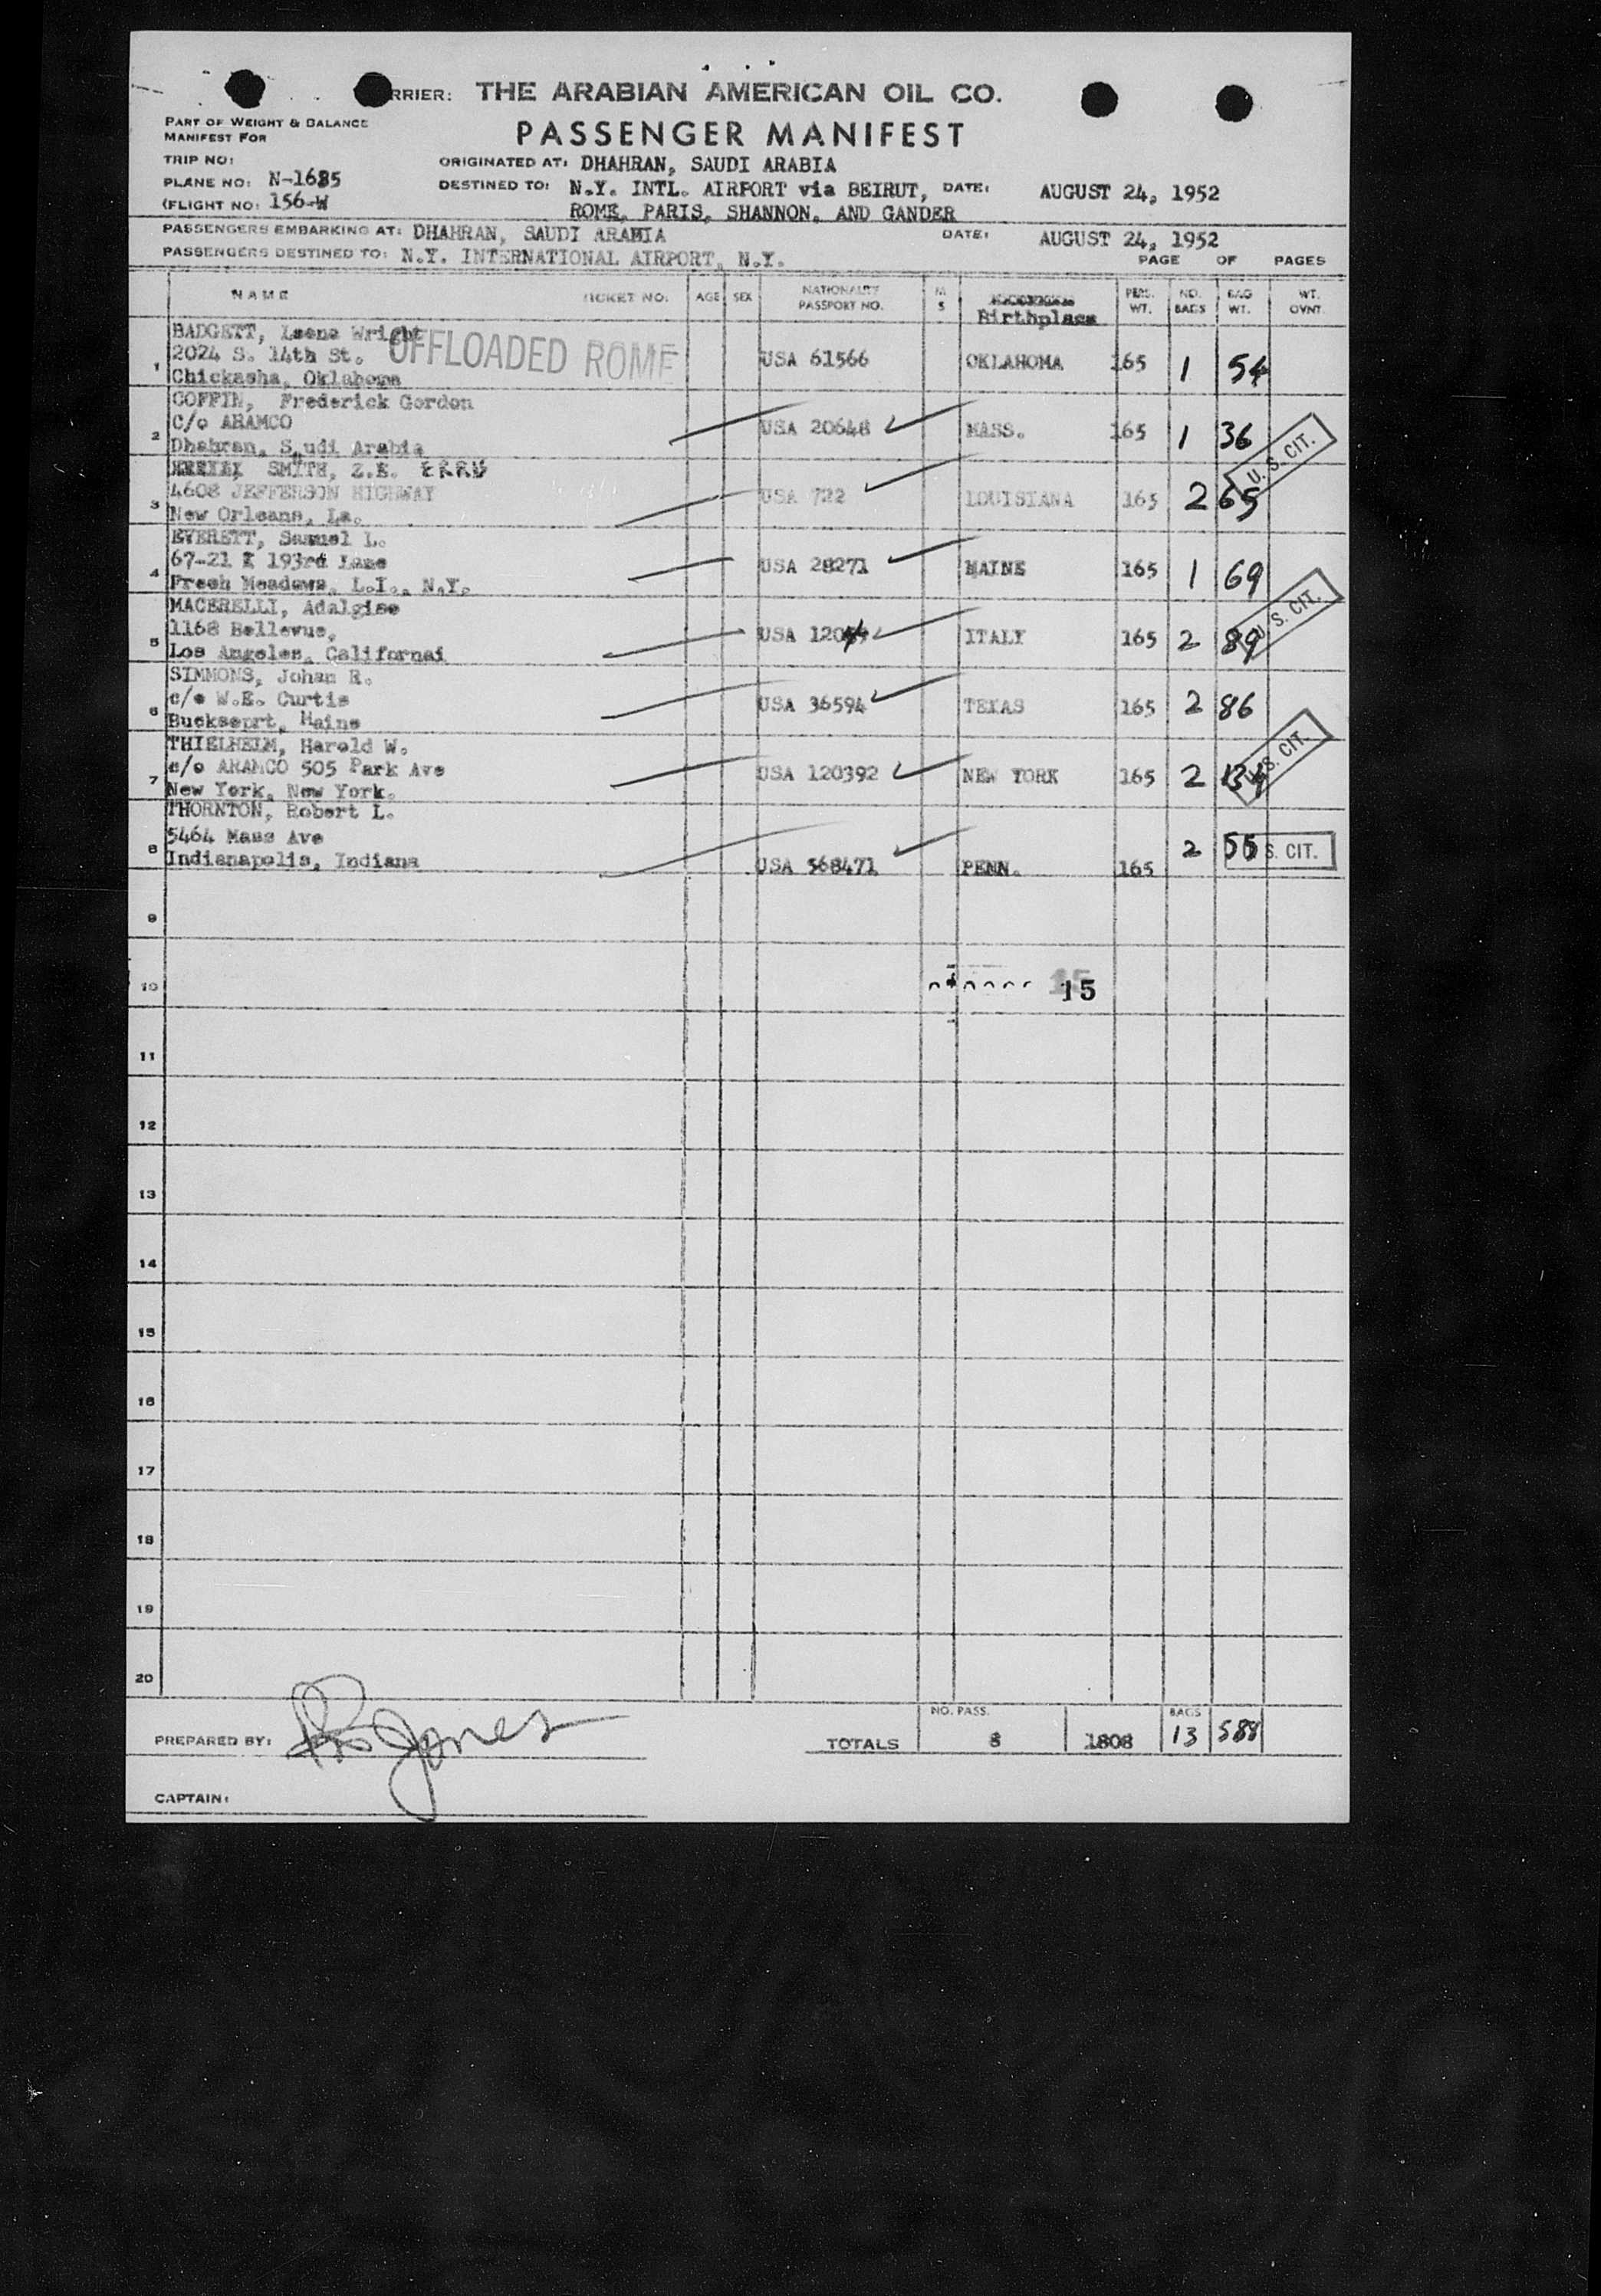 RRIER: THE ARABIAN AMERICAN OIL CO.
PART OF WEIGHT & BALANCE
MANIFEST FOR
PASSENGER MANIFEST
TRIP NO:
ORIGINATED AT: DHAHRAN, SAUDI ARABIA
PLANE NO: N-1685
DESTINED TO: N.Y. INTL. AIRPORT via BEIRUT, DATE: AUGUST 24, 1952
(FLIGHT NO: 156-W
ROME, PARIS, SHANNON, AND GANDER
PASSENGERS EMBARKING AT: DHAHRAN, SAUDI ARABIA DATE: AUGUST 24, 1952
PASSENGERS DESTINED TO: N.Y. INTERNATIONAL AIRPORT, N.Y. PAGE OF PAGES
NAME TICKET NO. AGE SEX NATIONALITY PASSPORT NO. M S Birthplace PERS. WT. NO. BAGS BAG WT. WT. OVNT.
BADGETT, Leene Wright
2024 S. 14th St. OFFLOADED ROME
1 Chickasha, Oklahoma USA 61566 OKLAHOMA 165 1 54
COFFIN, Frederick Gordon
C/o ARAMCO
2 Dhahran, Saudi Arabia USA 20648 MASS. 165 1 36
U. S. CIT.
SMITH, Z.E.
4608 JEFFERSON HIGHWAY
3 New Orleans, La. USA 722 LOUISIANA 165 2 65
EVERETT, Samuel L.
67-21 193rd Lane
4 Fresh Meadows, L.I., N.Y. USA 28271 MAINE 165 1 69
U. S. CIT.
MACERELLI, Adalgise
1168 Bellevue,
5 Los Angeles, Californai USA ITALY 165 2 89
SIMMONS, Johan R.
c/o W.E. Curtis
6 Buckseprt, Maine USA 36594 TEXAS 165 2 86
U. S. CIT.
THIELHELM, Harold W.
c/o ARAMCO 505 Park Ave
7 New York, New York. USA 120392 NEW YORK 165 2 134
THORNTON, Robert L.
5464 Mass Ave
8 Indianapolis, Indiana USA 568471 PENN. 165 2 55
S. CIT.
9
10 15
11
12
13
14
15
16
17
18
19
20
NO. PASS. BAGS
PREPARED BY: Jones TOTALS 8 1808 13 588
CAPTAIN: